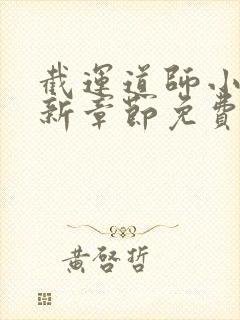 截運道師小
新章節免費
黃啓哲